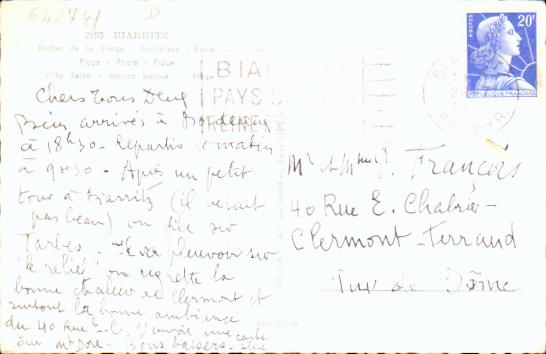 642741
2893 BIARRITZ
Rocher de la Vierge - Port-Vieux - Basta
Plage - Phare - Plage
Villa Belza - Maison basque - Plage
BIARRITZ
PAYS B
REINE
POSTES
20F
REPUBLIQUE FRANÇAISE
Chers tous Deux
Bien arrivés à Bordeaux
à 18h30. Repartis ce matin
à 9h30. Après un petit
tour à Biarritz (il ne fait
pas beau) on file sur
Tarbes. pleuvoir sur
"le relief" on regrette la
bonne chaleur de Clermont et
surtout la bonne ambiance
du 40 Rue E. C. J'envoie une carte
au Mt Dore. Bons baisers.
Mr & Mme J. François
40 Rue E. Chabrier
Clermont-Ferrand
Puy de Dôme